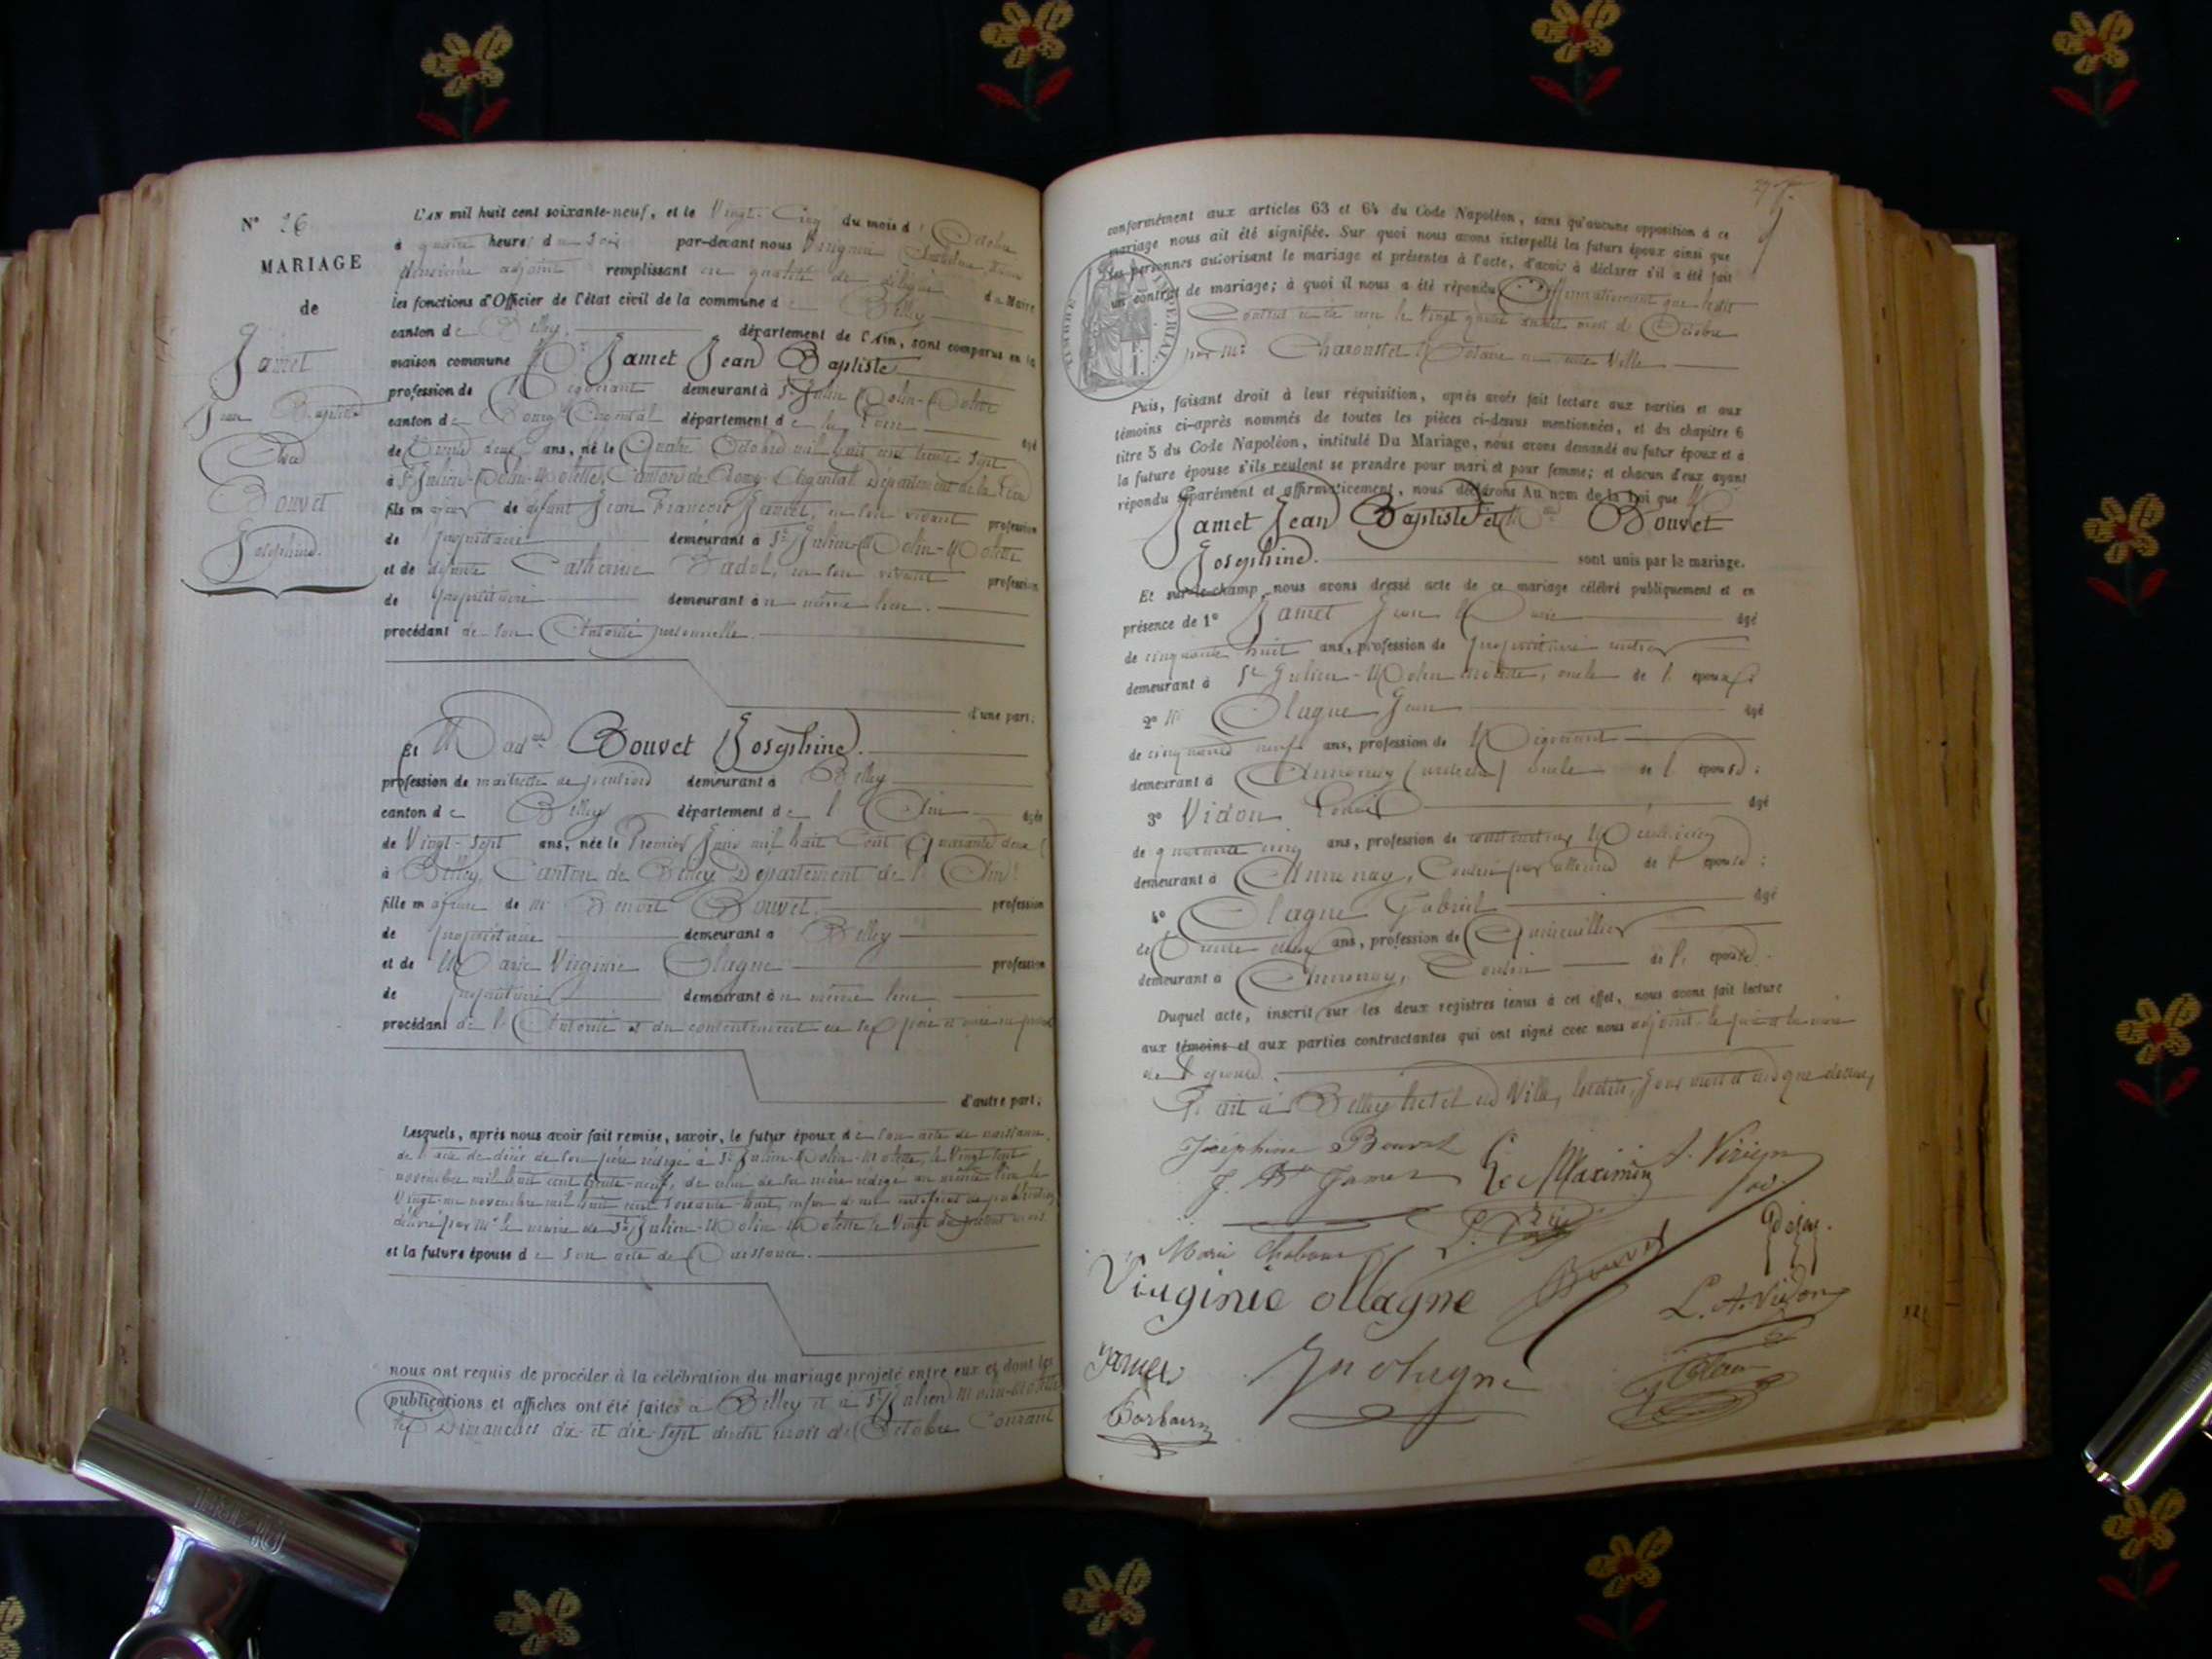 N° 26
MARIAGE
de
Jamet
Jean Baptiste
Et
Bouvet
Joséphine.
L'AN mil huit cent soixante-neuf, et le Vingt-Cinq du mois d' Octobre
à quatre heures du Soir par-devant nous
deuxième adjoint remplissant en qualité de délégué du Maire
les fonctions d'Officier de l'état civil de la commune de Belley
canton de Belley. département de l'Ain, sont comparus en la
maison commune Mr Jamet Jean Baptiste
profession de Négociant demeurant à St Julien-Molin-Molette
canton de Bourg-Argental département de la Loire âgé
de Trente deux ans, né le Quatre Octobre mil huit cent trente-sept
à St Julien-Molin-Molette, Canton de Bourg-Argental Département de la Loire
fils majeur de défunt Jean François Jamet, en son vivant profession
de propriétaire demeurant à St Julien-Molin-Molette
et de défunte Catherine Badol, en son vivant profession
de propriétaire demeurant au même lieu.
procédant de son Autorité personnelle.
d'une part;
Et Madlle Bouvet Joséphine.
profession de maîtresse de pension demeurant à Belley
canton de Belley département de l'Ain âgée
de Vingt-sept ans, née le Premier Juin mil huit Cent Quarante deux
à Belley, Canton de Belley Département de l'Ain
fille majeure de Mr Benoît Bouvet profession
de propriétaire demeurant à Belley
et de Marie Virginie Olagne profession
de propriétaire demeurant au même lieu
procédant de l'Autorité et du consentement de ses père et mère
d'autre part;
Lesquels, après nous avoir fait remise, savoir, le futur époux de son acte de naissance,
de l'acte de décès de son père rédigé à St Julien-Molin-Molette, le Vingt-sept
novembre mil huit cent trente-neuf, de celui de sa mère rédigé au même lieu le
Vingt-un novembre mil huit cent soixante-huit, enfin d'un certificat de publication
délivré par Mr le maire de St Julien-Molin-Molette le Vingt du présent mois
et la future épouse de son acte de Naissance.
nous ont requis de procéder à la célébration du mariage projeté entre eux et dont les
publications et affiches ont été faites à Belley et à St Julien Molin-Molette
les Dimanches dix et dix-sept dudit mois d'Octobre Courant
conformément aux articles 63 et 64 du Code Napoléon, sans qu'aucune opposition à ce
mariage nous ait été signifiée. Sur quoi nous avons interpellé les futurs époux ainsi que
les personnes autorisant le mariage et présentes à l'acte, d'avoir à déclarer s'il a été fait
un contrat de mariage; à quoi il nous a été répondu Affirmativement que ledit
Contrat a été reçu le Vingt quatre dudit mois d'Octobre
par Me Charousset Notaire en cette Ville
TIMBRE IMPÉRIAL
Puis, faisant droit à leur réquisition, après avoir fait lecture aux parties et aux
témoins ci-après nommés de toutes les pièces ci-dessus mentionnées, et du chapitre 6
titre 5 du Code Napoléon, intitulé Du Mariage, nous avons demandé au futur époux et à
la future épouse s'ils veulent se prendre pour mari et pour femme; et chacun d'eux ayant
répondu séparément et affirmativement, nous déclarons Au nom de la Loi que Mr
Jamet Jean Baptiste et Mlle Bouvet
Joséphine. sont unis par le mariage.
Et sur-le-champ nous avons dressé acte de ce mariage célébré publiquement et en
présence de 1° Jamet Jean Marie âgé
de cinquante huit ans, profession de propriétaire rentier
demeurant à St Julien-Molin-Molette, oncle de l'époux;
2° Mr Olagne Jean âgé
de cinquante neuf ans, profession de Négociant
demeurant à Annonay (ardèche) oncle de l'épouse;
3° Vidon Louis âgé
de quarante cinq ans, profession de Mécanicien
demeurant à Annonay, Cousin par alliance de l'épouse;
4° Olagne Gabriel âgé
de Trente deux ans, profession de Quincaillier
demeurant à Annonay, Cousin de l'épouse.
Duquel acte, inscrit sur les deux registres tenus à cet effet, nous avons fait lecture
aux témoins et aux parties contractantes qui ont signé avec nous adjoint, le père et la mère
de l'épouse.
Fait à Belley hôtel de Ville, lesdits jour mois et an que dessus,
Joséphine Bouvet
J. Bte Jamet
Maximin
Marie Chabanne
Virginie ollagne
Bouvet
L. A. Vidon
Jamet
Jn olagne